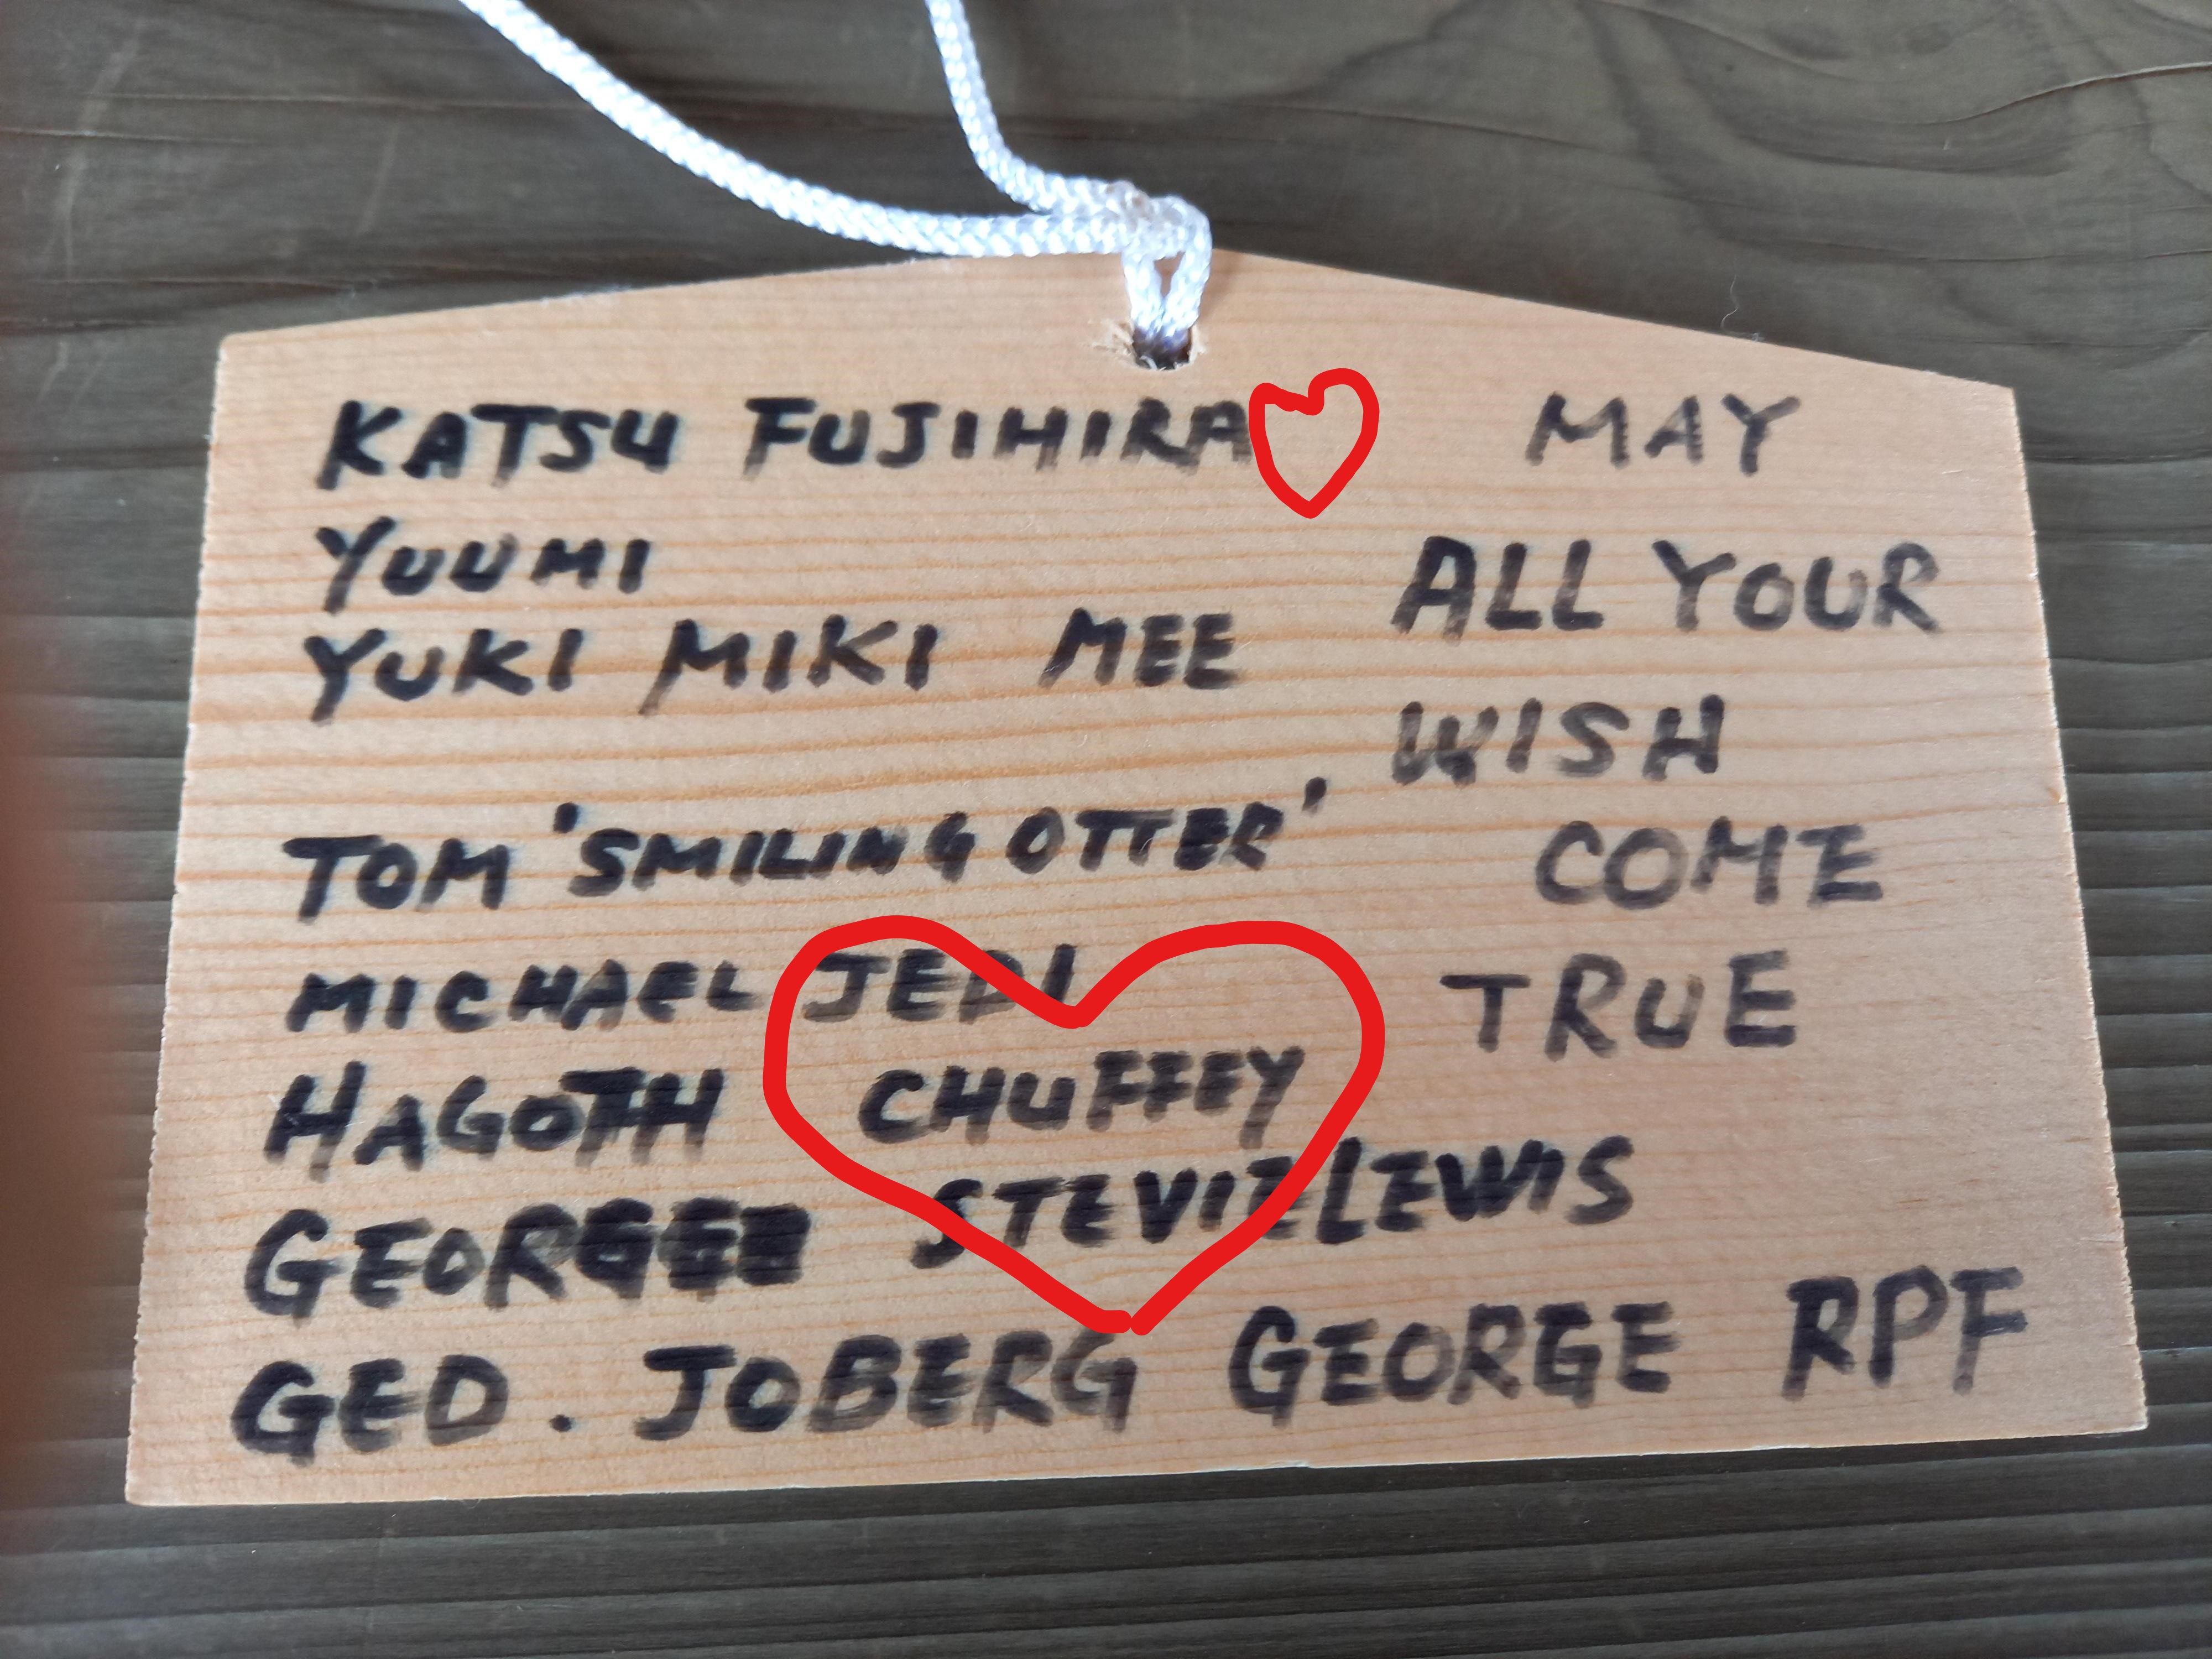 KATSU FUJIHIRA
YUUMI
YUKI MIKI MEE
TOM 'SMILING OTTER'
MICHAEL JEDI
HAGOTH CHUFFEY
GEORGE STEVIE LEWIS
GED. JOBERG GEORGE RPF
MAY
ALL YOUR
WISH
COME
TRUE